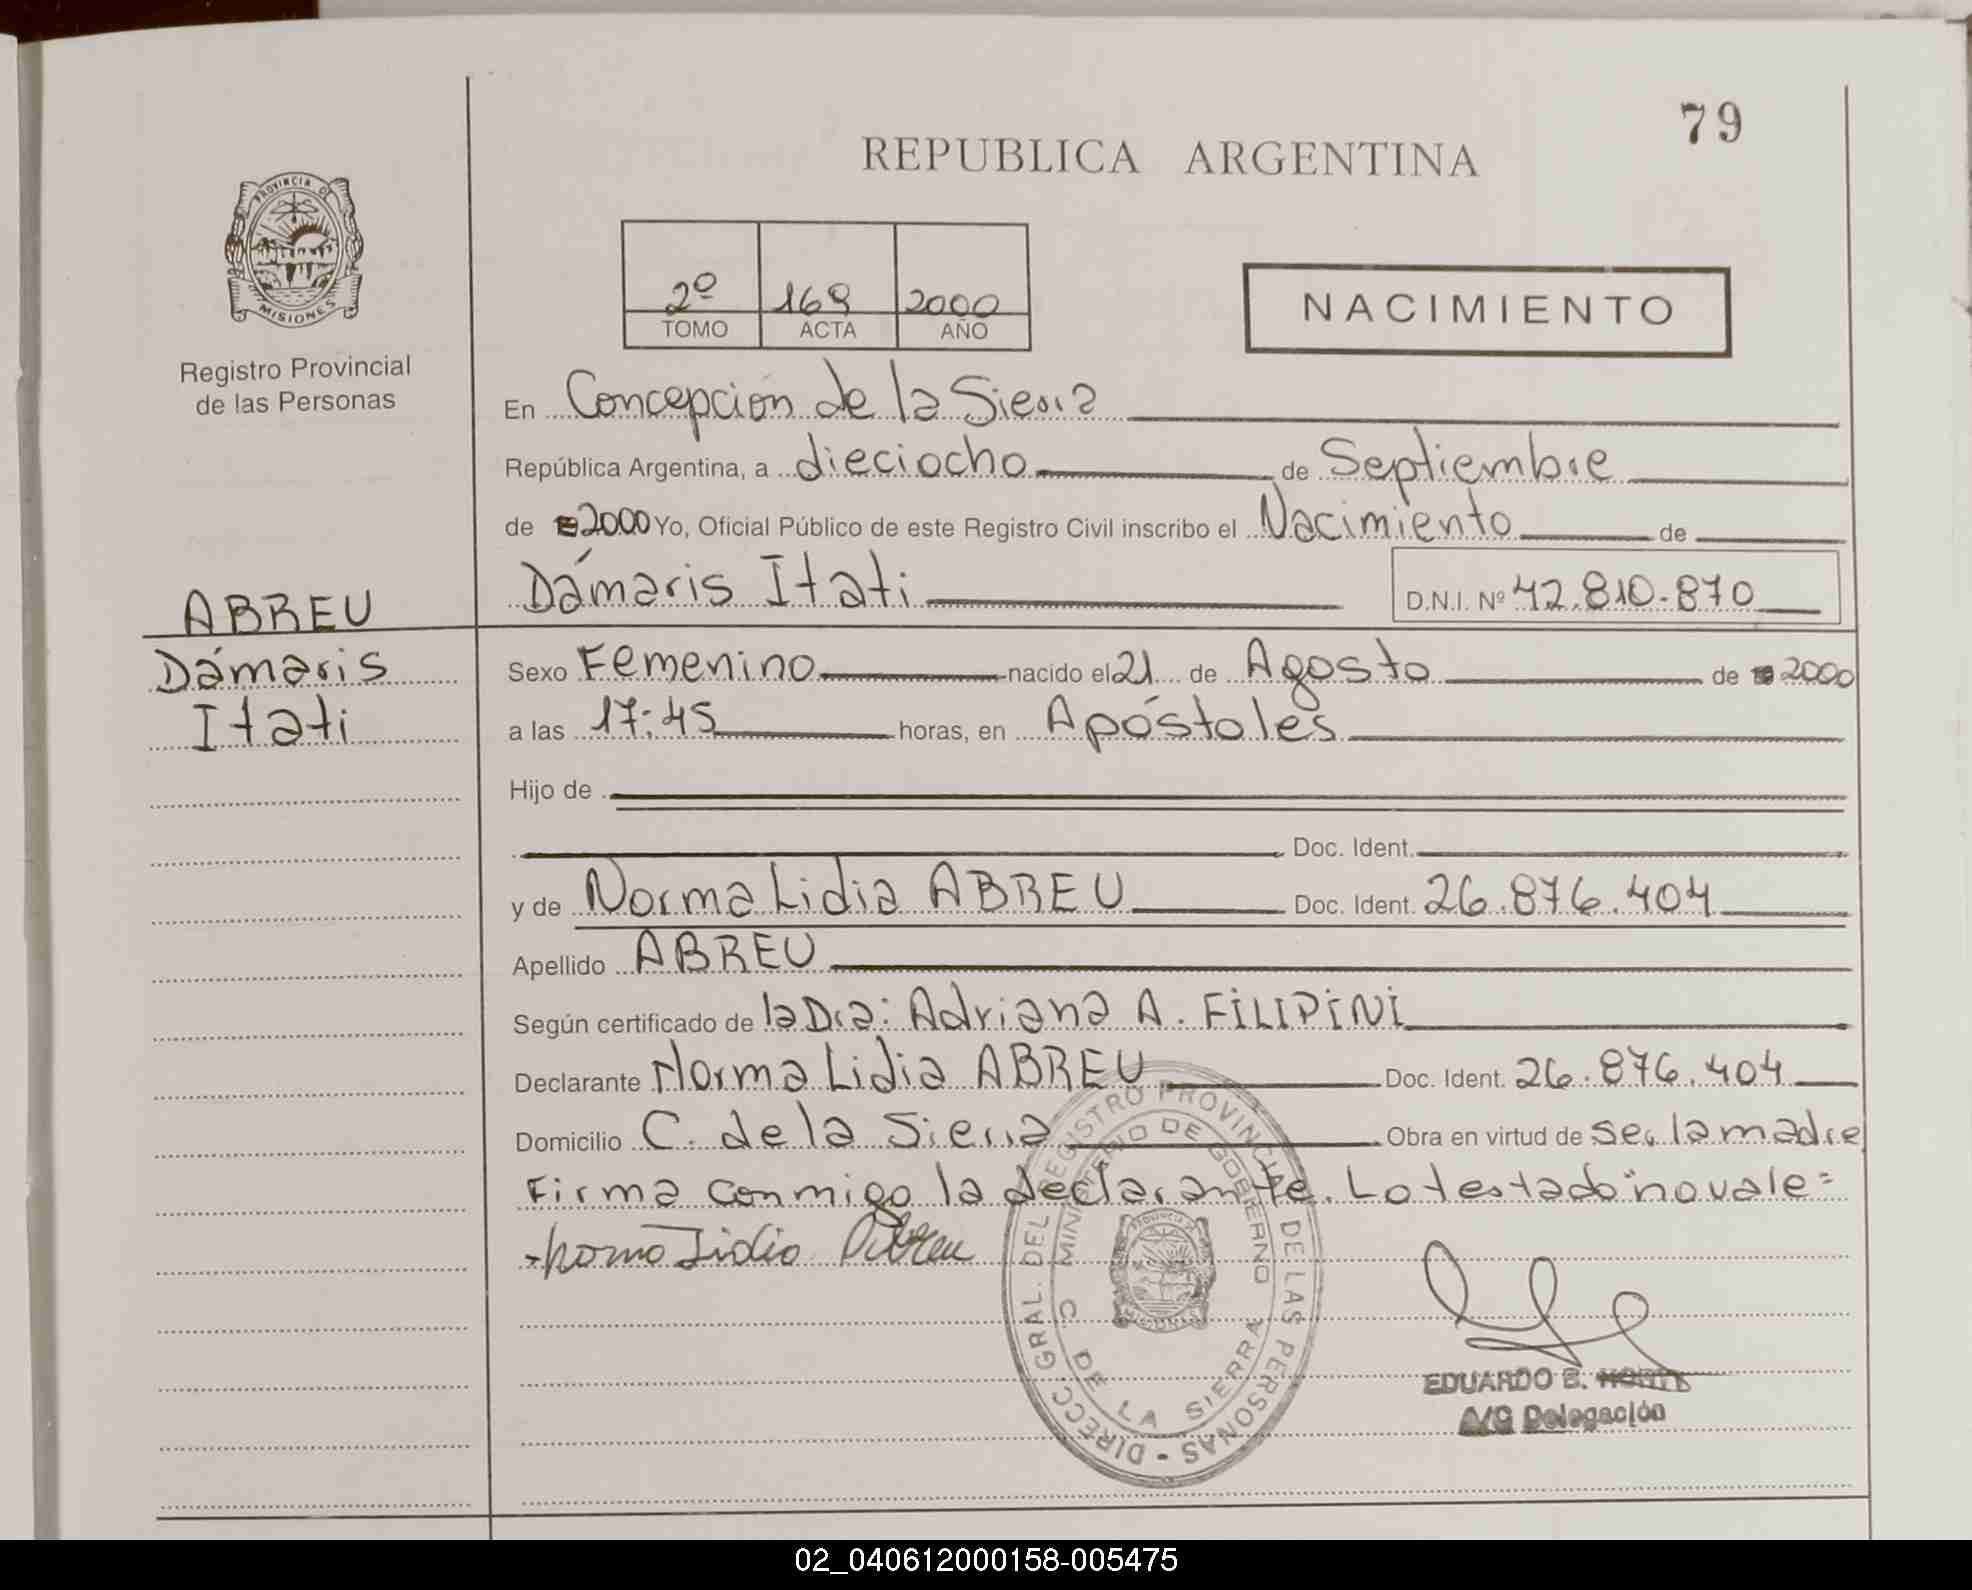 79
REPUBLICA ARGENTINA
PROVINCIA DE
MISIONES
Registro Provincial
de las Personas
2º 169 2000
TOMO ACTA AÑO
NACIMIENTO
En Concepción de la Sierra
República Argentina, a dieciocho de Septiembre
de 2000 Yo, Oficial Público de este Registro Civil inscribo el Nacimiento de
Dámaris Itati D.N.I. Nº 42.810.870
ABREU
Dámaris
Itati
Sexo Femenino nacido el 21 de Agosto de 2000
a las 17:45 horas, en Apóstoles
Hijo de
Doc. Ident.
y de Norma Lidia ABREU Doc. Ident. 26.876.404
Apellido ABREU
Según certificado de la Dra: Adriana A. FiLiPiNi
Declarante Norma Lidia ABREU Doc. Ident. 26.876.404
Domicilio C. de la Sierra Obra en virtud de ser la madre
Firma conmigo la declarante. Lo testado "no vale=
Norma Lidia Abreu
DIRECC. GRAL. DEL REGISTRO PROVINCIAL DE LAS PERSONAS -
MINISTERIO DE GOBIERNO
C DE LA SIERRA
EDUARDO B.
A/C Delegación
02_040612000158-005475